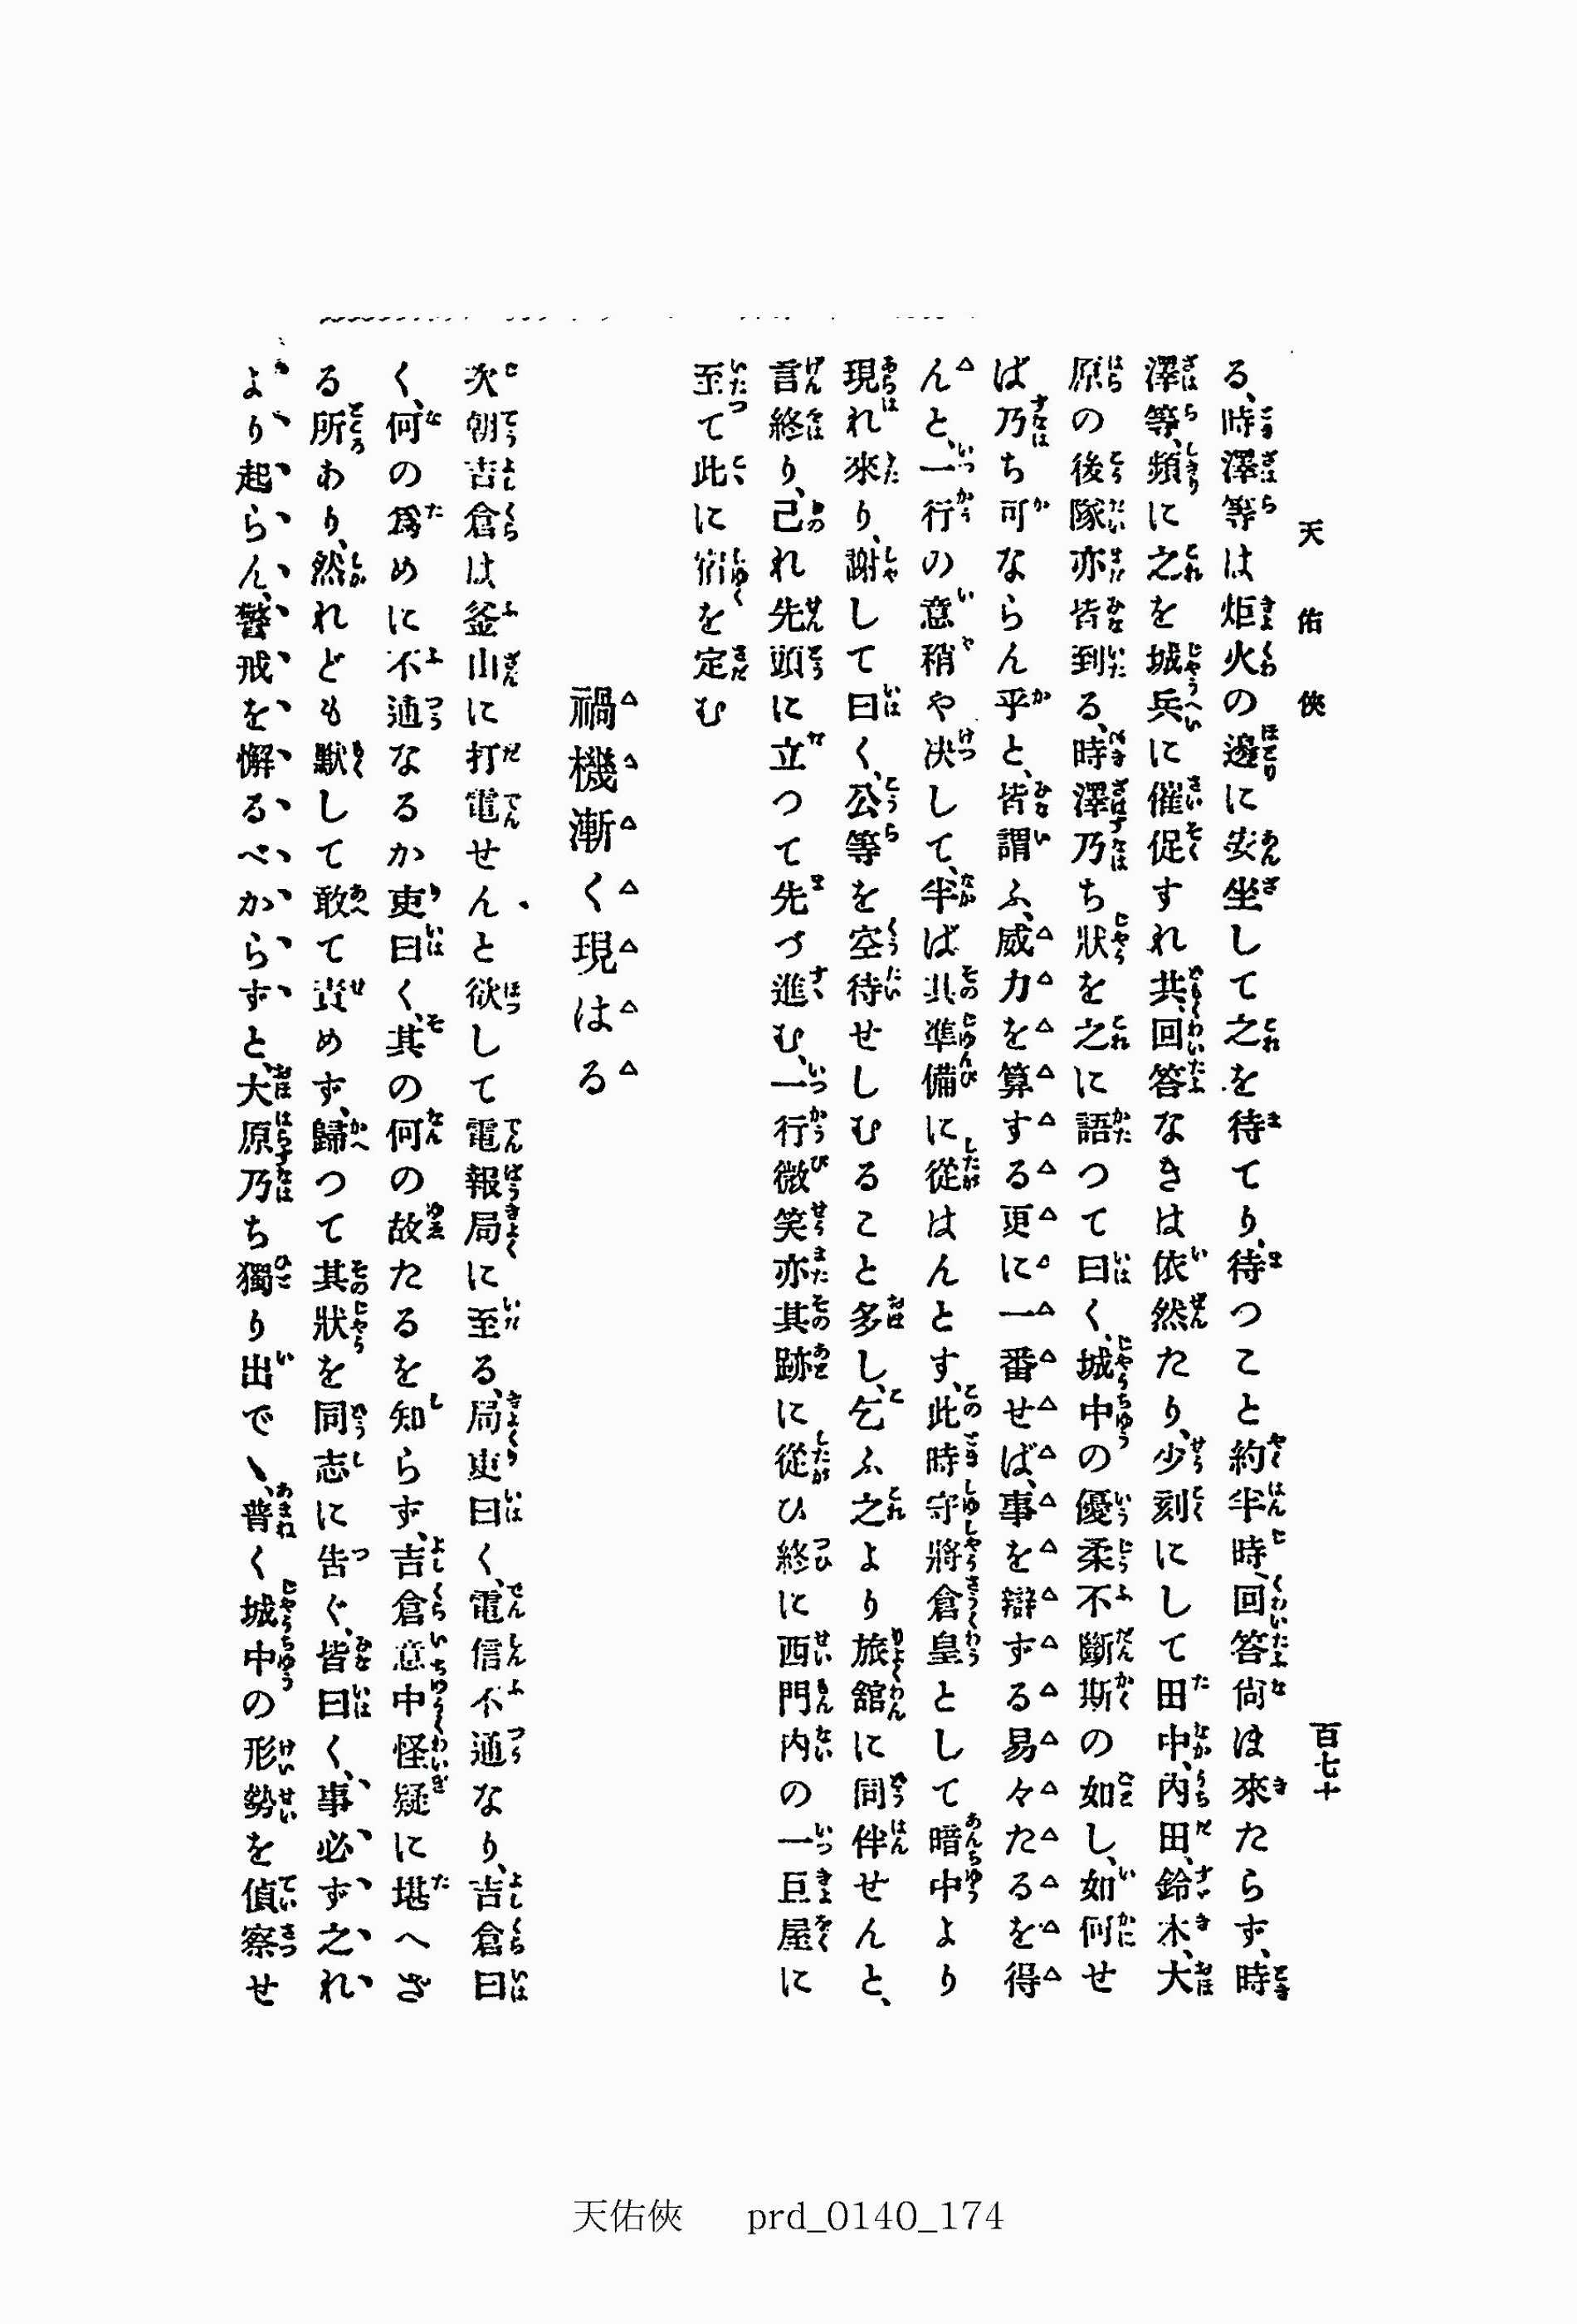 天佑俠
百七十
る、時澤等は炬火の邊に安坐して之を待てり、待つこと約半時、回答尙ほ來たらず、時
澤等、頻に之を城兵に催促すれ共、回答なきは依然たり、少刻にして田中、內田、鈴木、大
原の後隊亦皆到る、時澤乃ち狀を之に語つて曰く、城中の優柔不斷斯の如し、如何せ
ば乃ち可ならん乎と、皆謂ふ、威力を算する更に一番せば、事を辯ずる易々たるを得
んと、一行の意稍や决して、半ば其準備に從はんとす、此時守將倉皇として暗中より
現れ來り、謝して曰く、公等を空待せしむること多し、乞ふ之より旅舘に同伴せんと、
言終り、己れ先頭に立つて先づ進む、一行微笑亦其跡に從ひ終に西門內の一巨屋に
至て此に宿を定む
禍機漸く現はる
次朝吉倉は釜山に打電せんと欲して電報局に至る、局吏曰く、電信不通なり、吉倉曰
く、何の爲めに不通なるか吏曰く、其の何の故たるを知らず、吉倉意中怪疑に堪へざ
る所あり、然れども默して敢て責めず、歸つて其狀を同志に吿ぐ、皆曰く、事必ず之れ
より起らん、警戒を懈るべからずと、大原乃ち獨り出でヽ、普く城中の形勢を偵察せ
天佑俠 prd_0140_174